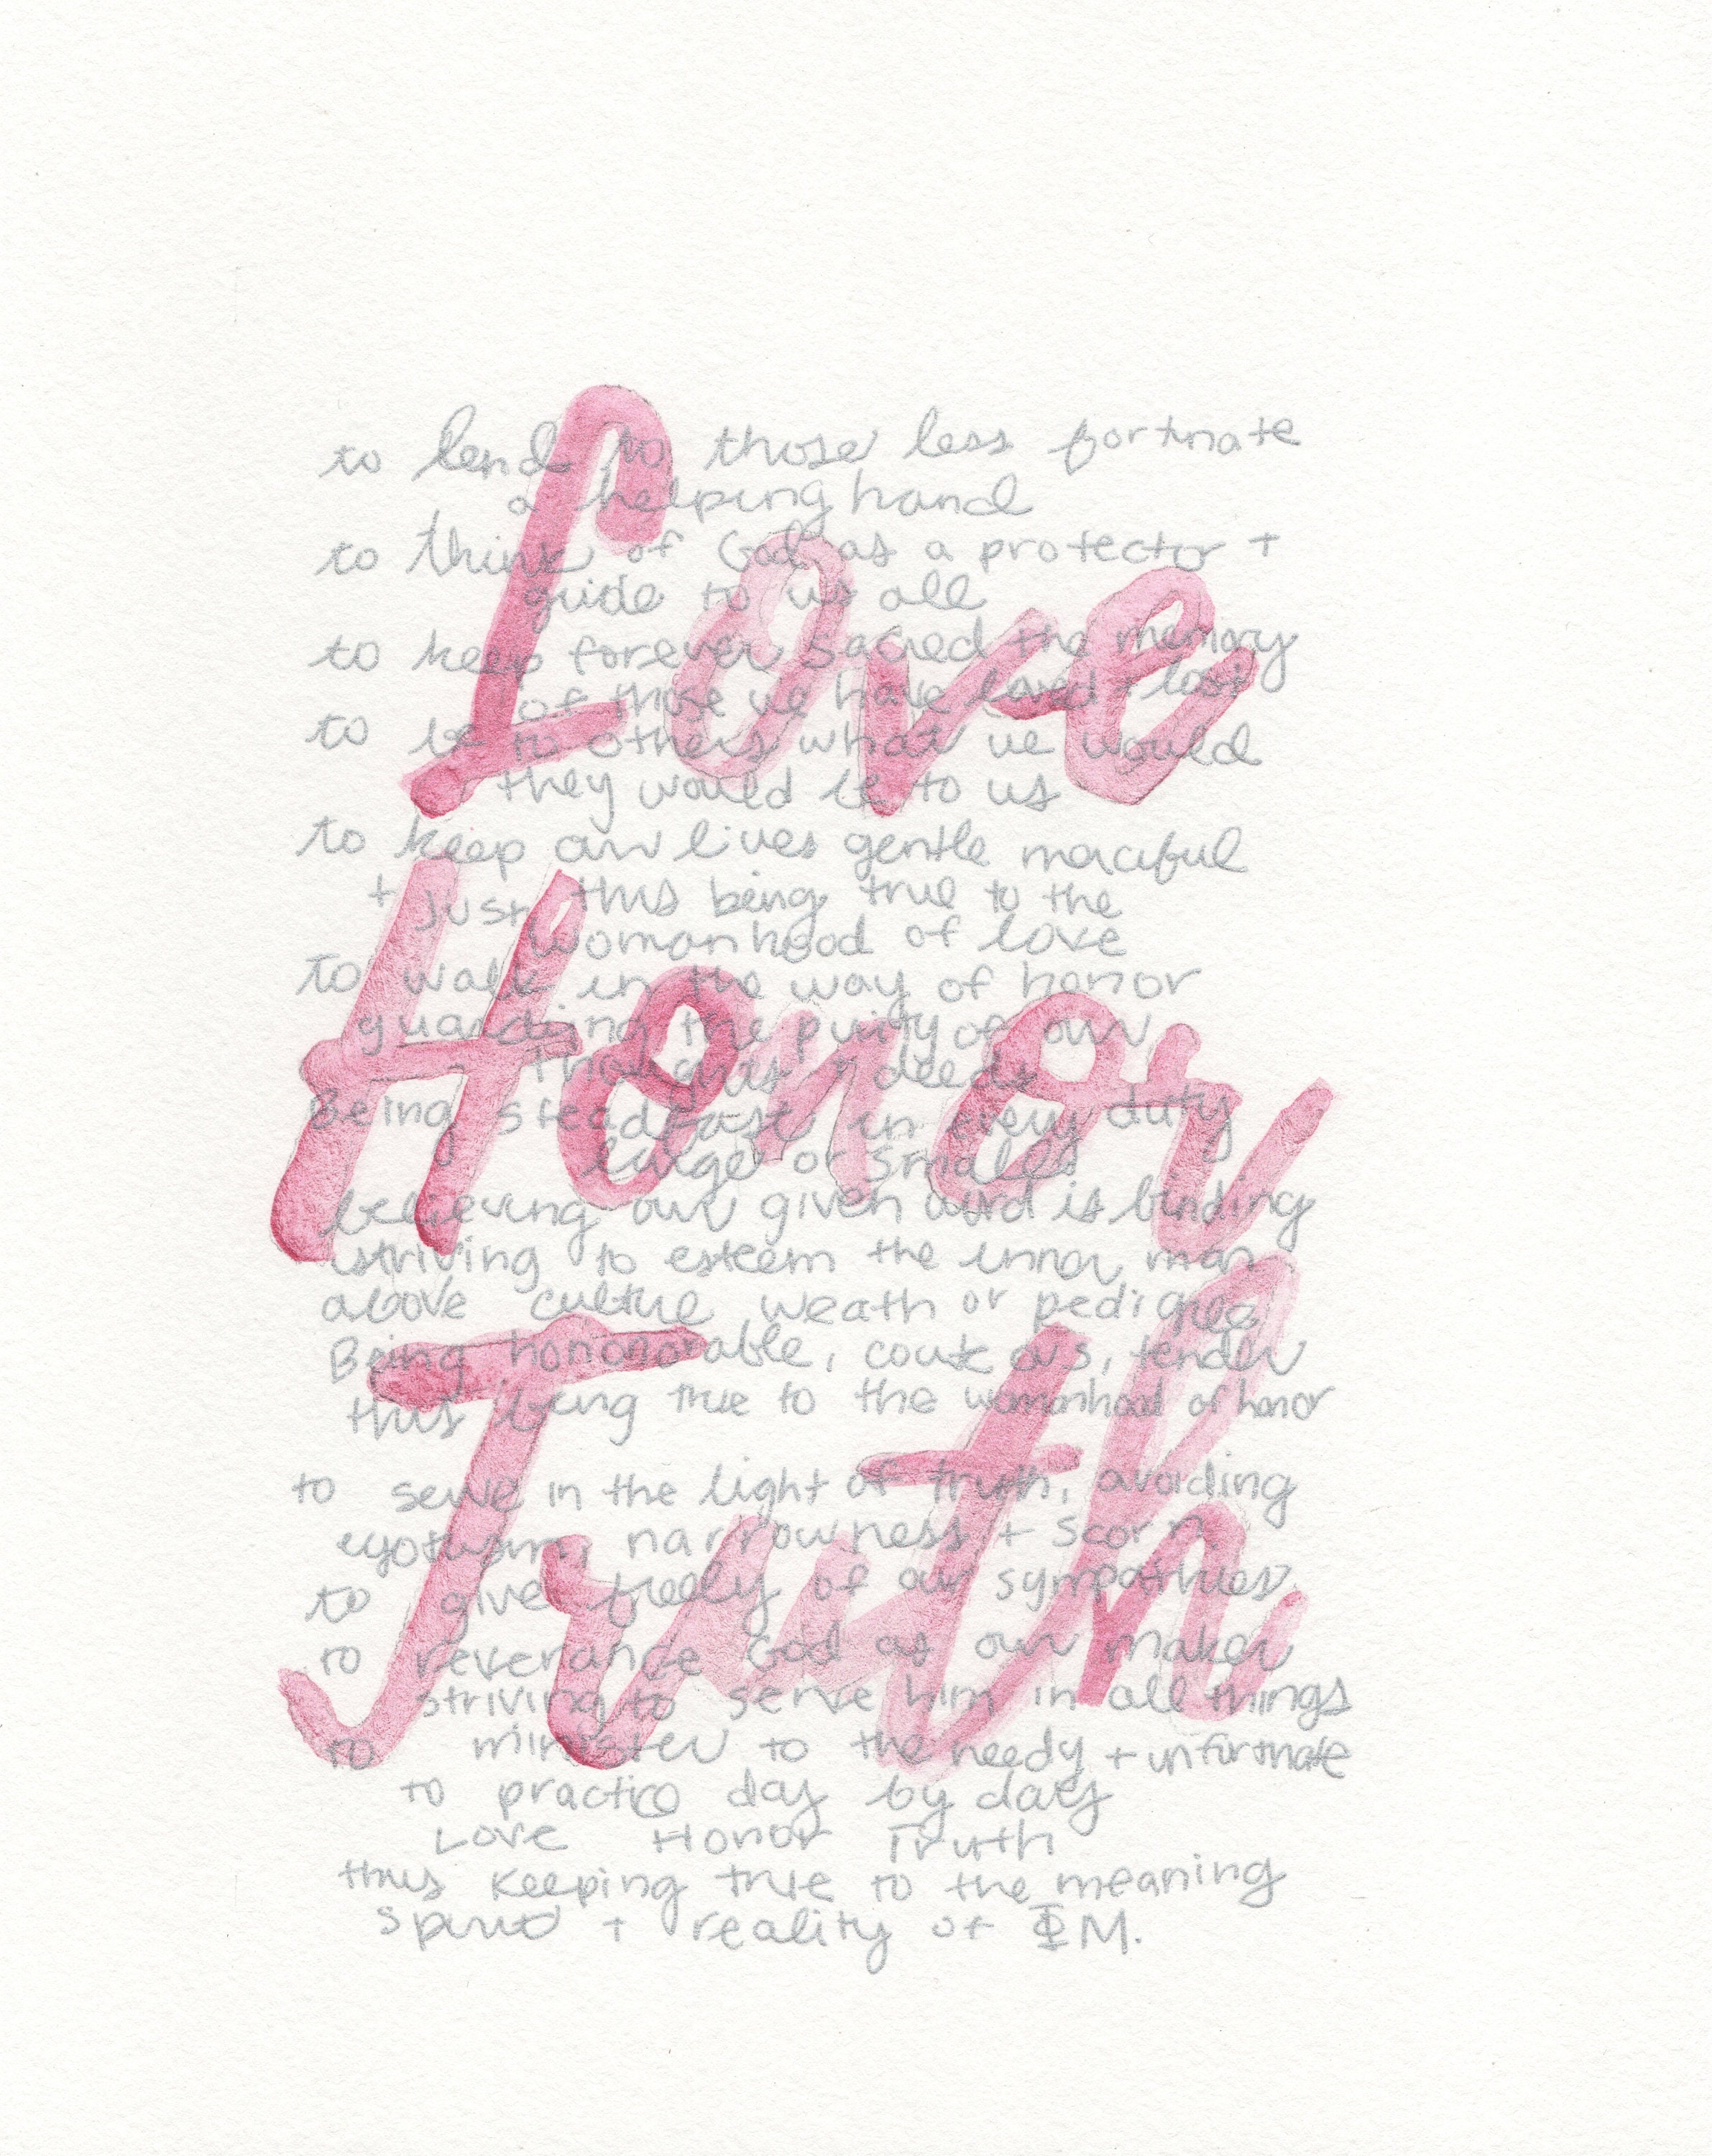 Love
Honor
Truth
to lend to those less fortunate
a helping hand
to think of God as a protector +
guide to us all
to keep forever sacred the memory
of those we have loved + lost
to be to others what we would
they would be to us
to keep our lives gentle merciful
+ just thus being true to the
womanhood of love
to walk in the way of honor
guarding the purity of our
thoughts + deeds
Being steadfast in every duty
large or small
believing our given word is binding
striving to esteem the inner man
above culture weath or pedigree
Being hononorable, courteous, tender
thus being true to the womanhood of honor
to serve in the light of truth, avoiding
egotism, narrowness + scorn
to give freely of our sympathies
to reverance God as our maker
striving to serve him in all things
to minister to the needy + unfortunate
to practice day by day
Love Honor Truth
thus keeping true to the meaning
spirit + reality of ΦM.